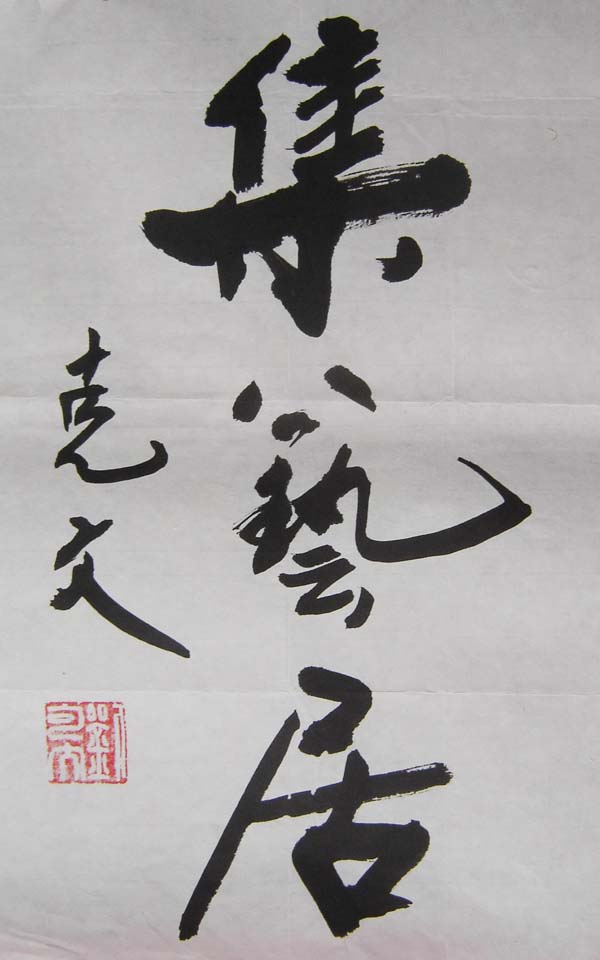 集藝居
克文